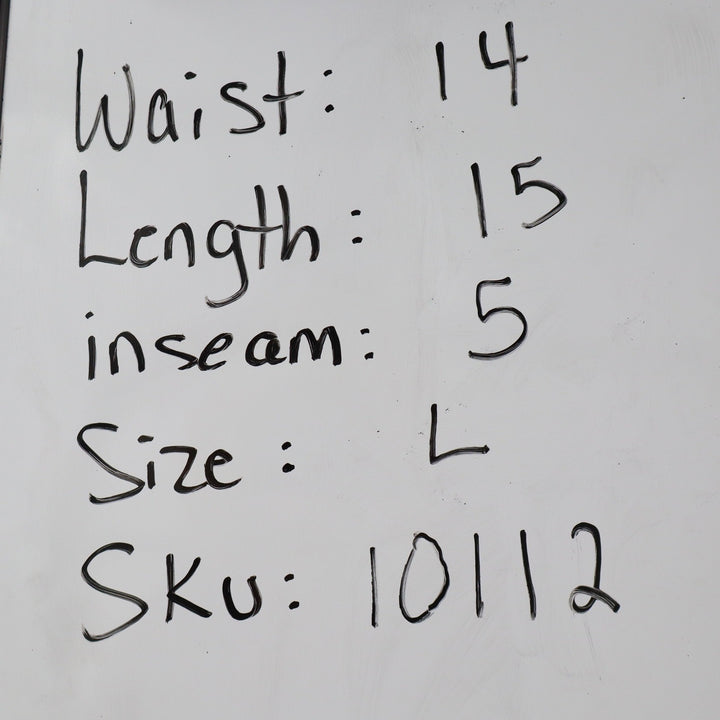 Waist: 14
Length: 15
inseam: 5
Size: L
SKU: 10112